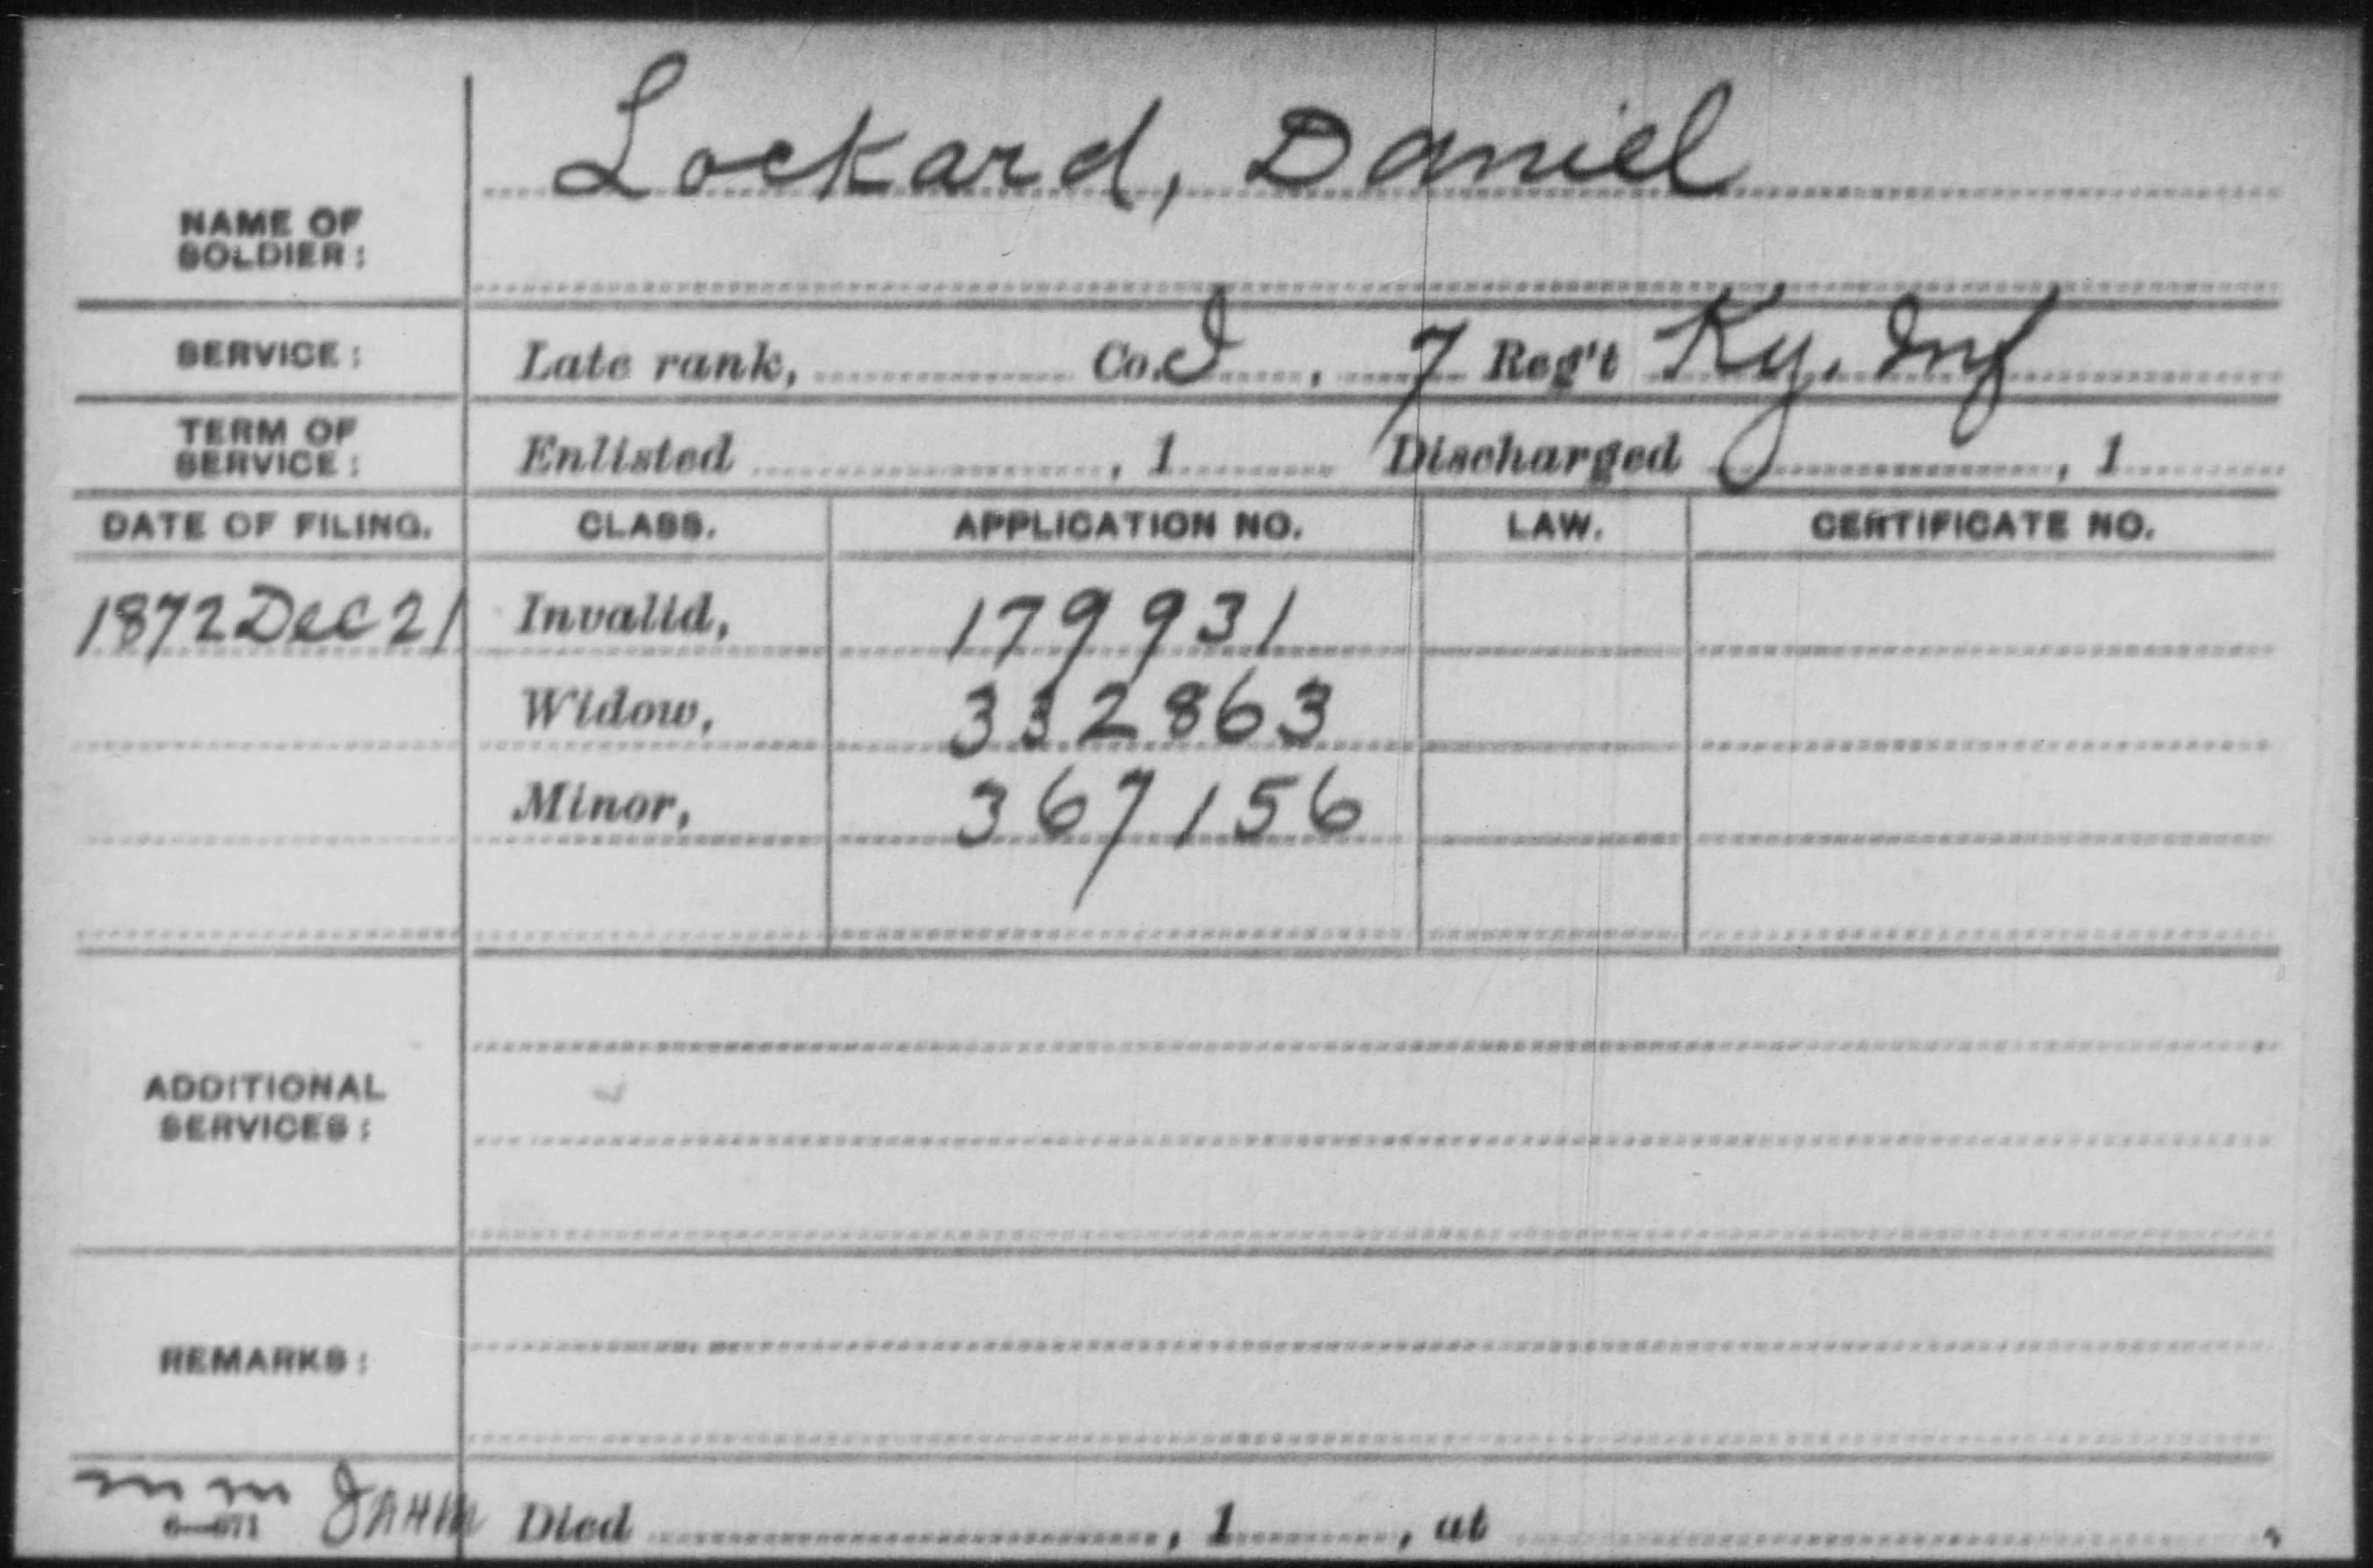 Lockard, Daniel
NAME OF
SOLDIER:
SERVICE: Late rank, Co. I, 7 Reg't Ky. Inf
TERM OF
SERVICE: Enlisted , 1 Discharged , 1
DATE OF FILING. CLASS. APPLICATION NO. LAW. CERTIFICATE NO.
1872 Dec 21 Invalid, 179931
Widow, 332863
Minor, 367156
ADDITIONAL
SERVICES:
REMARKS:
mm
6-071 Died , 1 , at